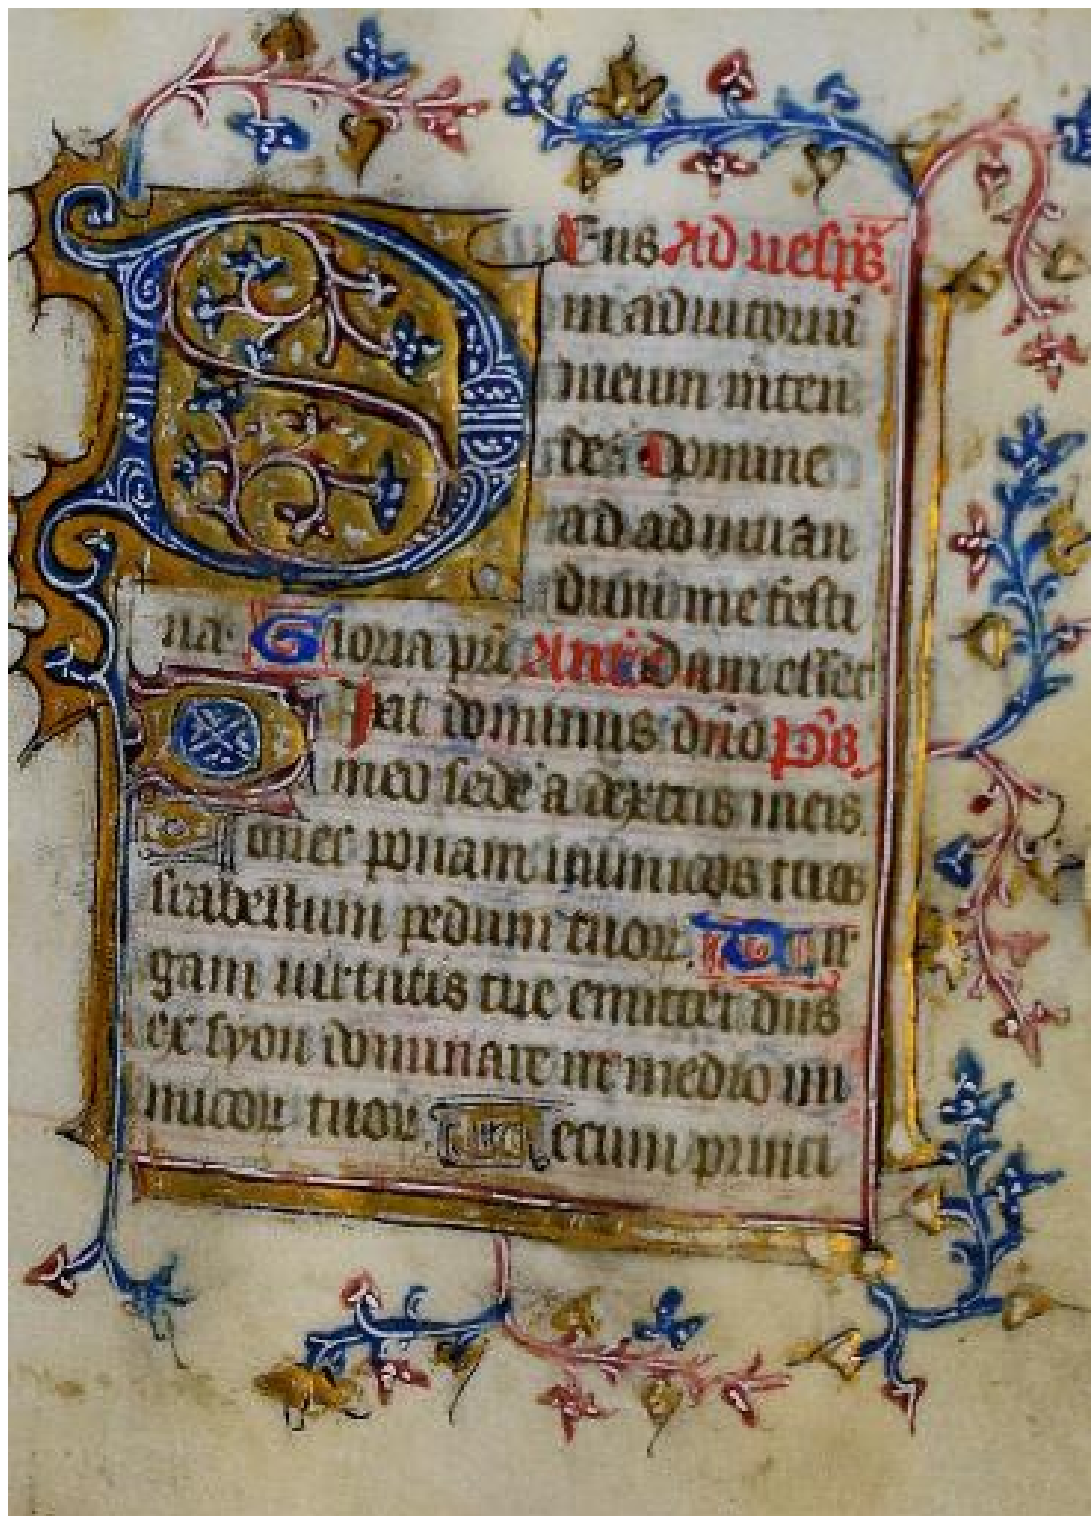 Deus Ad uesp̄s.
in adiutoriū
meum inten
de. Domine
ad adiuuan
dum me festi
na. Gloria pr̄i. Ant̄. Dum esset
Dixit dominus dn̄o p̄s.
meo sede a dextris meis.
Donec ponam inimicos tuos
scabellum pedum tuoꝝ. Vir
gam uirtutis tue emittet dn̄s
ex syon dominare in medio ini
micoꝝ tuoꝝ. Tecum princi